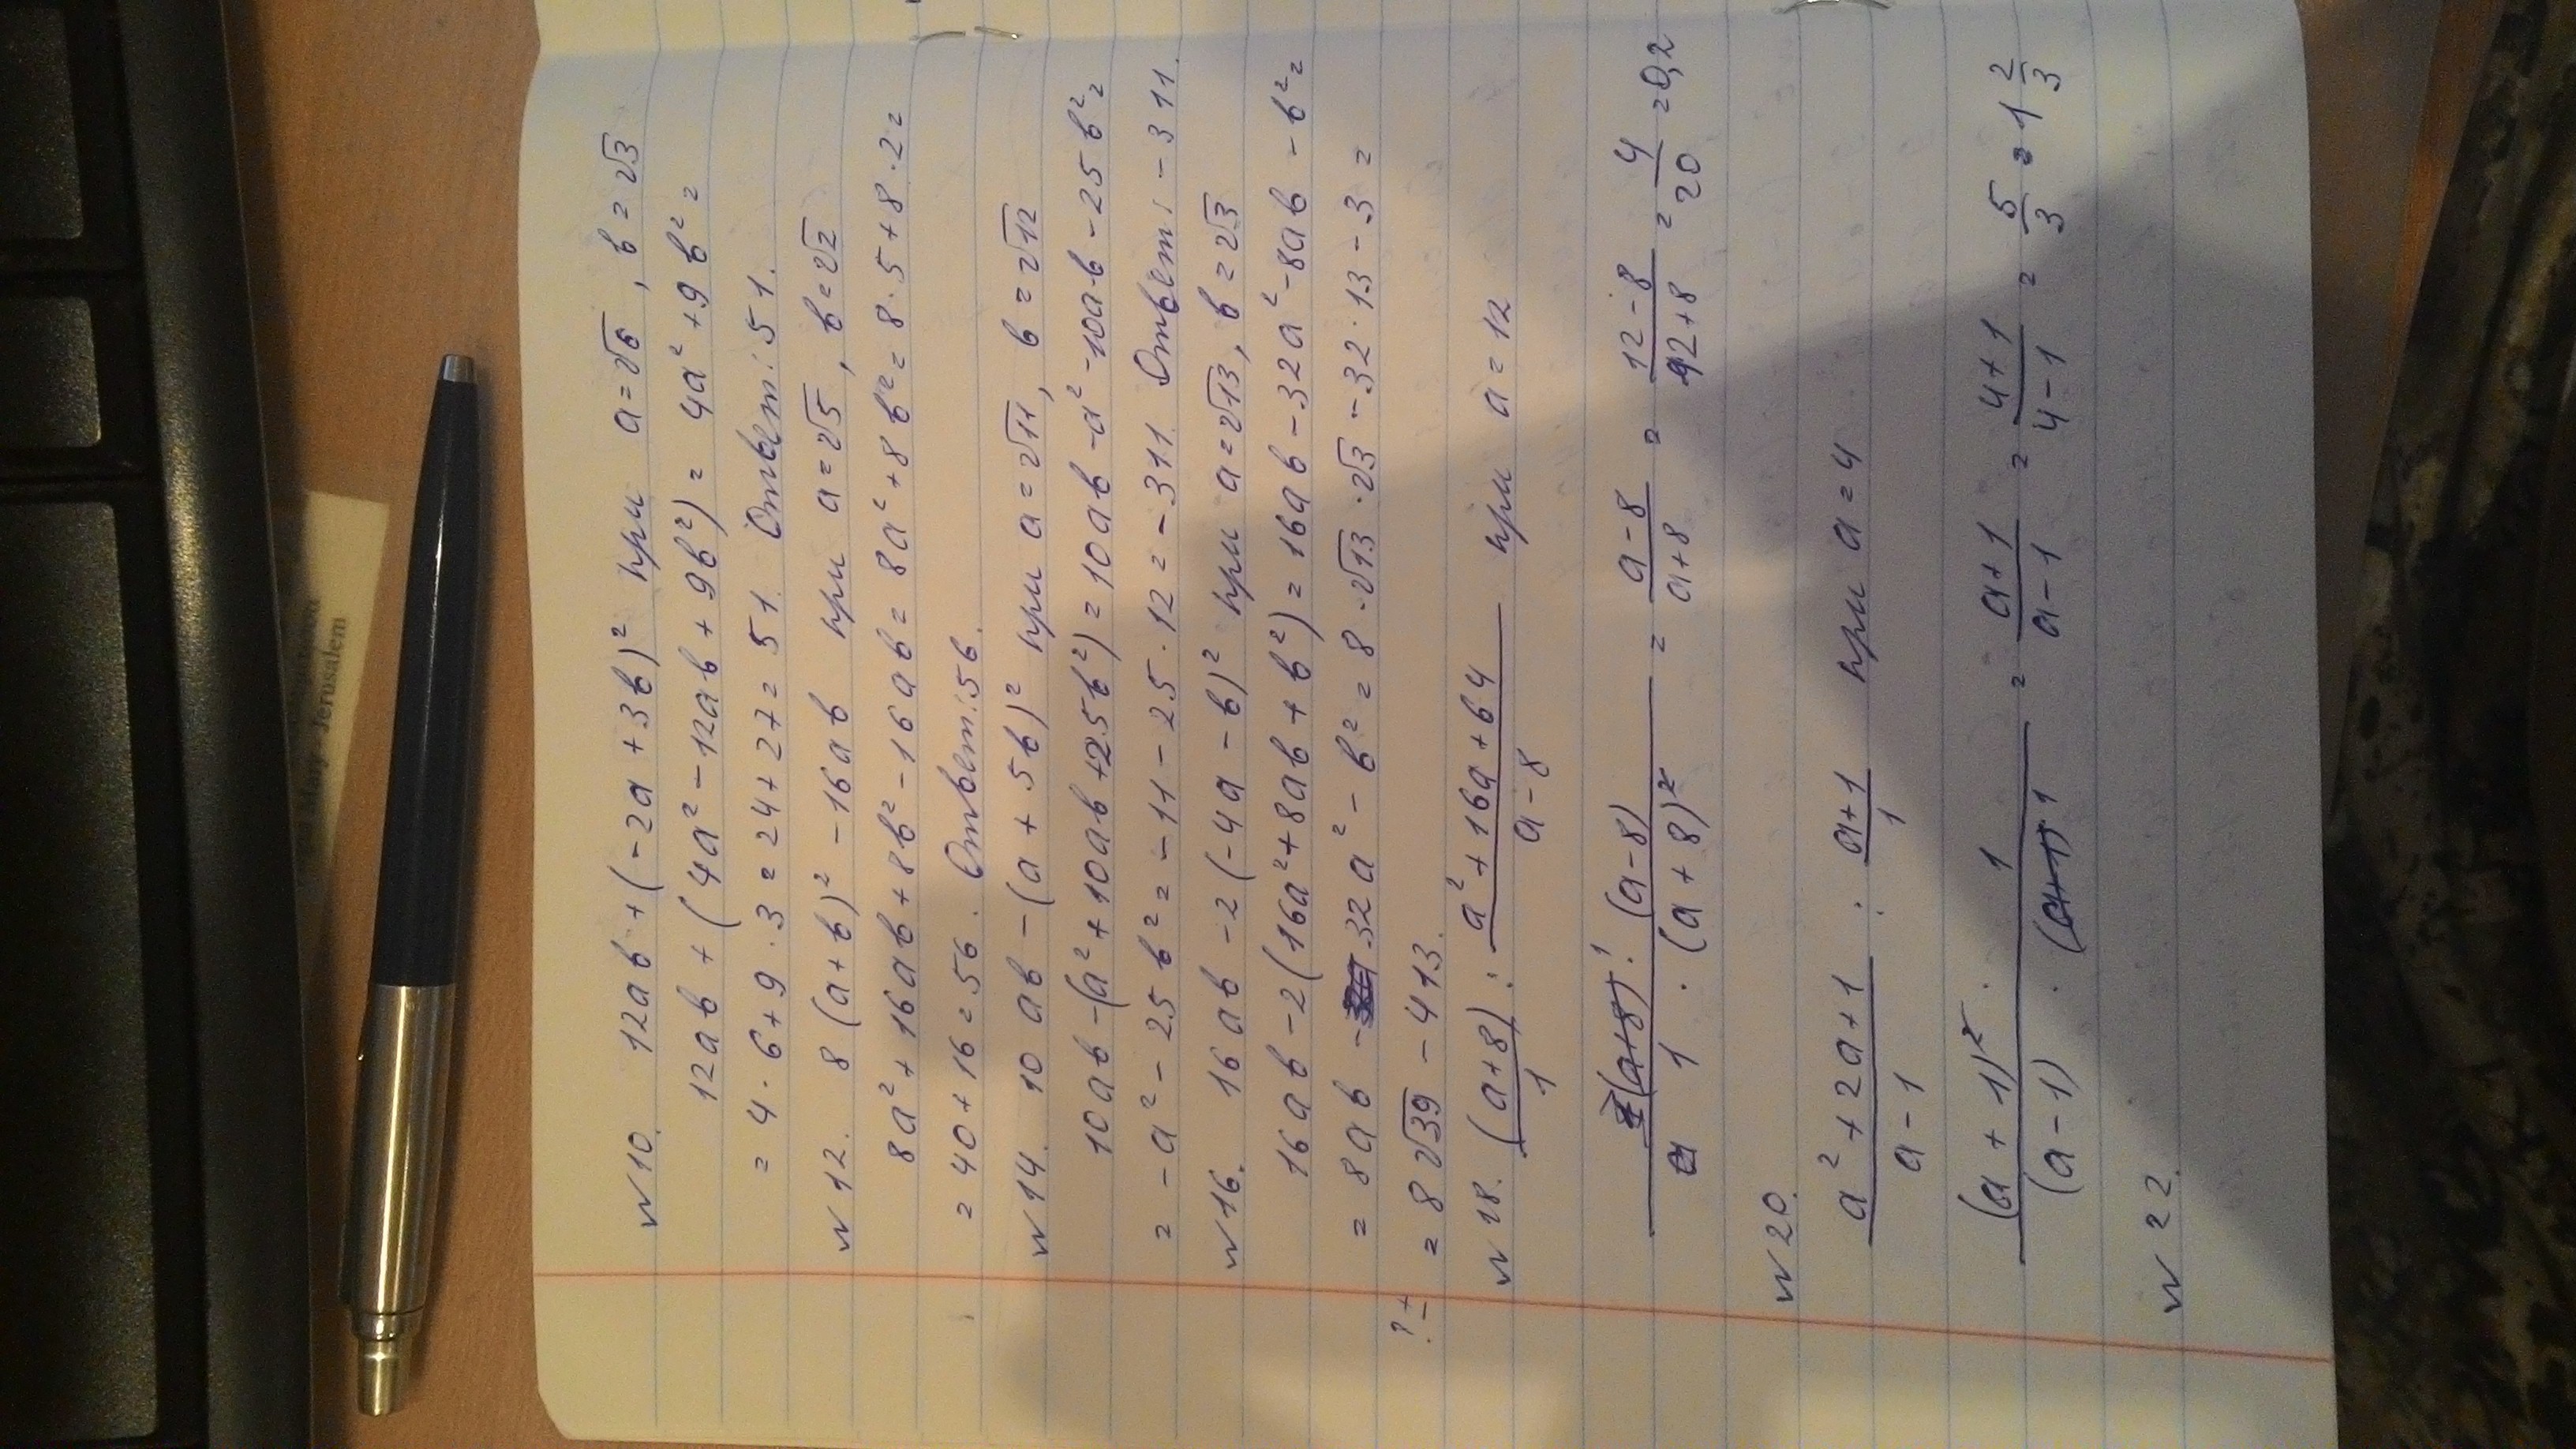 N10. 12ab + (-2a + 3b)² при a = √6, b = √3
12ab + (4a² - 12ab + 9b²) = 4a² + 9b² =
= 4 · 6 + 9 · 3 = 24 + 27 = 51. Ответ: 51.
N12. 8(a+b)² - 16ab при a = √5, b = √2
8a² + 16ab + 8b² - 16ab = 8a² + 8b² = 8 · 5 + 8 · 2 =
= 40 + 16 = 56. Ответ: 56.
N14. 10ab - (a + 5b)² при a = √11, b = √12
10ab - (a² + 10ab + 25b²) = 10ab - a² - 10ab - 25b² =
= -a² - 25b² = -11 - 25 · 12 = -311. Ответ: -311.
N16. 16ab - 2(-4a - b)² при a = √13, b = √3
16ab - 2(16a² + 8ab + b²) = 16ab - 32a² - 8ab - b² =
= 8ab - 32a² - b² = 8 · √13 · √3 - 32 · 13 - 3 =
?± = 8√39 - 413.
N18. (a+8)/1 : (a² + 16a + 64)/(a - 8) при a = 12
(a+8)¹ · (a-8) / 1 · (a+8)² = (a-8)/(a+8) = (12-8)/(12+8) = 4/20 = 0,2
N20.
(a² + 2a + 1)/(a - 1) : (a+1)/1 при a = 4
(a+1)² · 1 / (a-1) · (a+1) 1 = (a+1)/(a-1) = (4+1)/(4-1) = 5/3 = 1 2/3
N22.